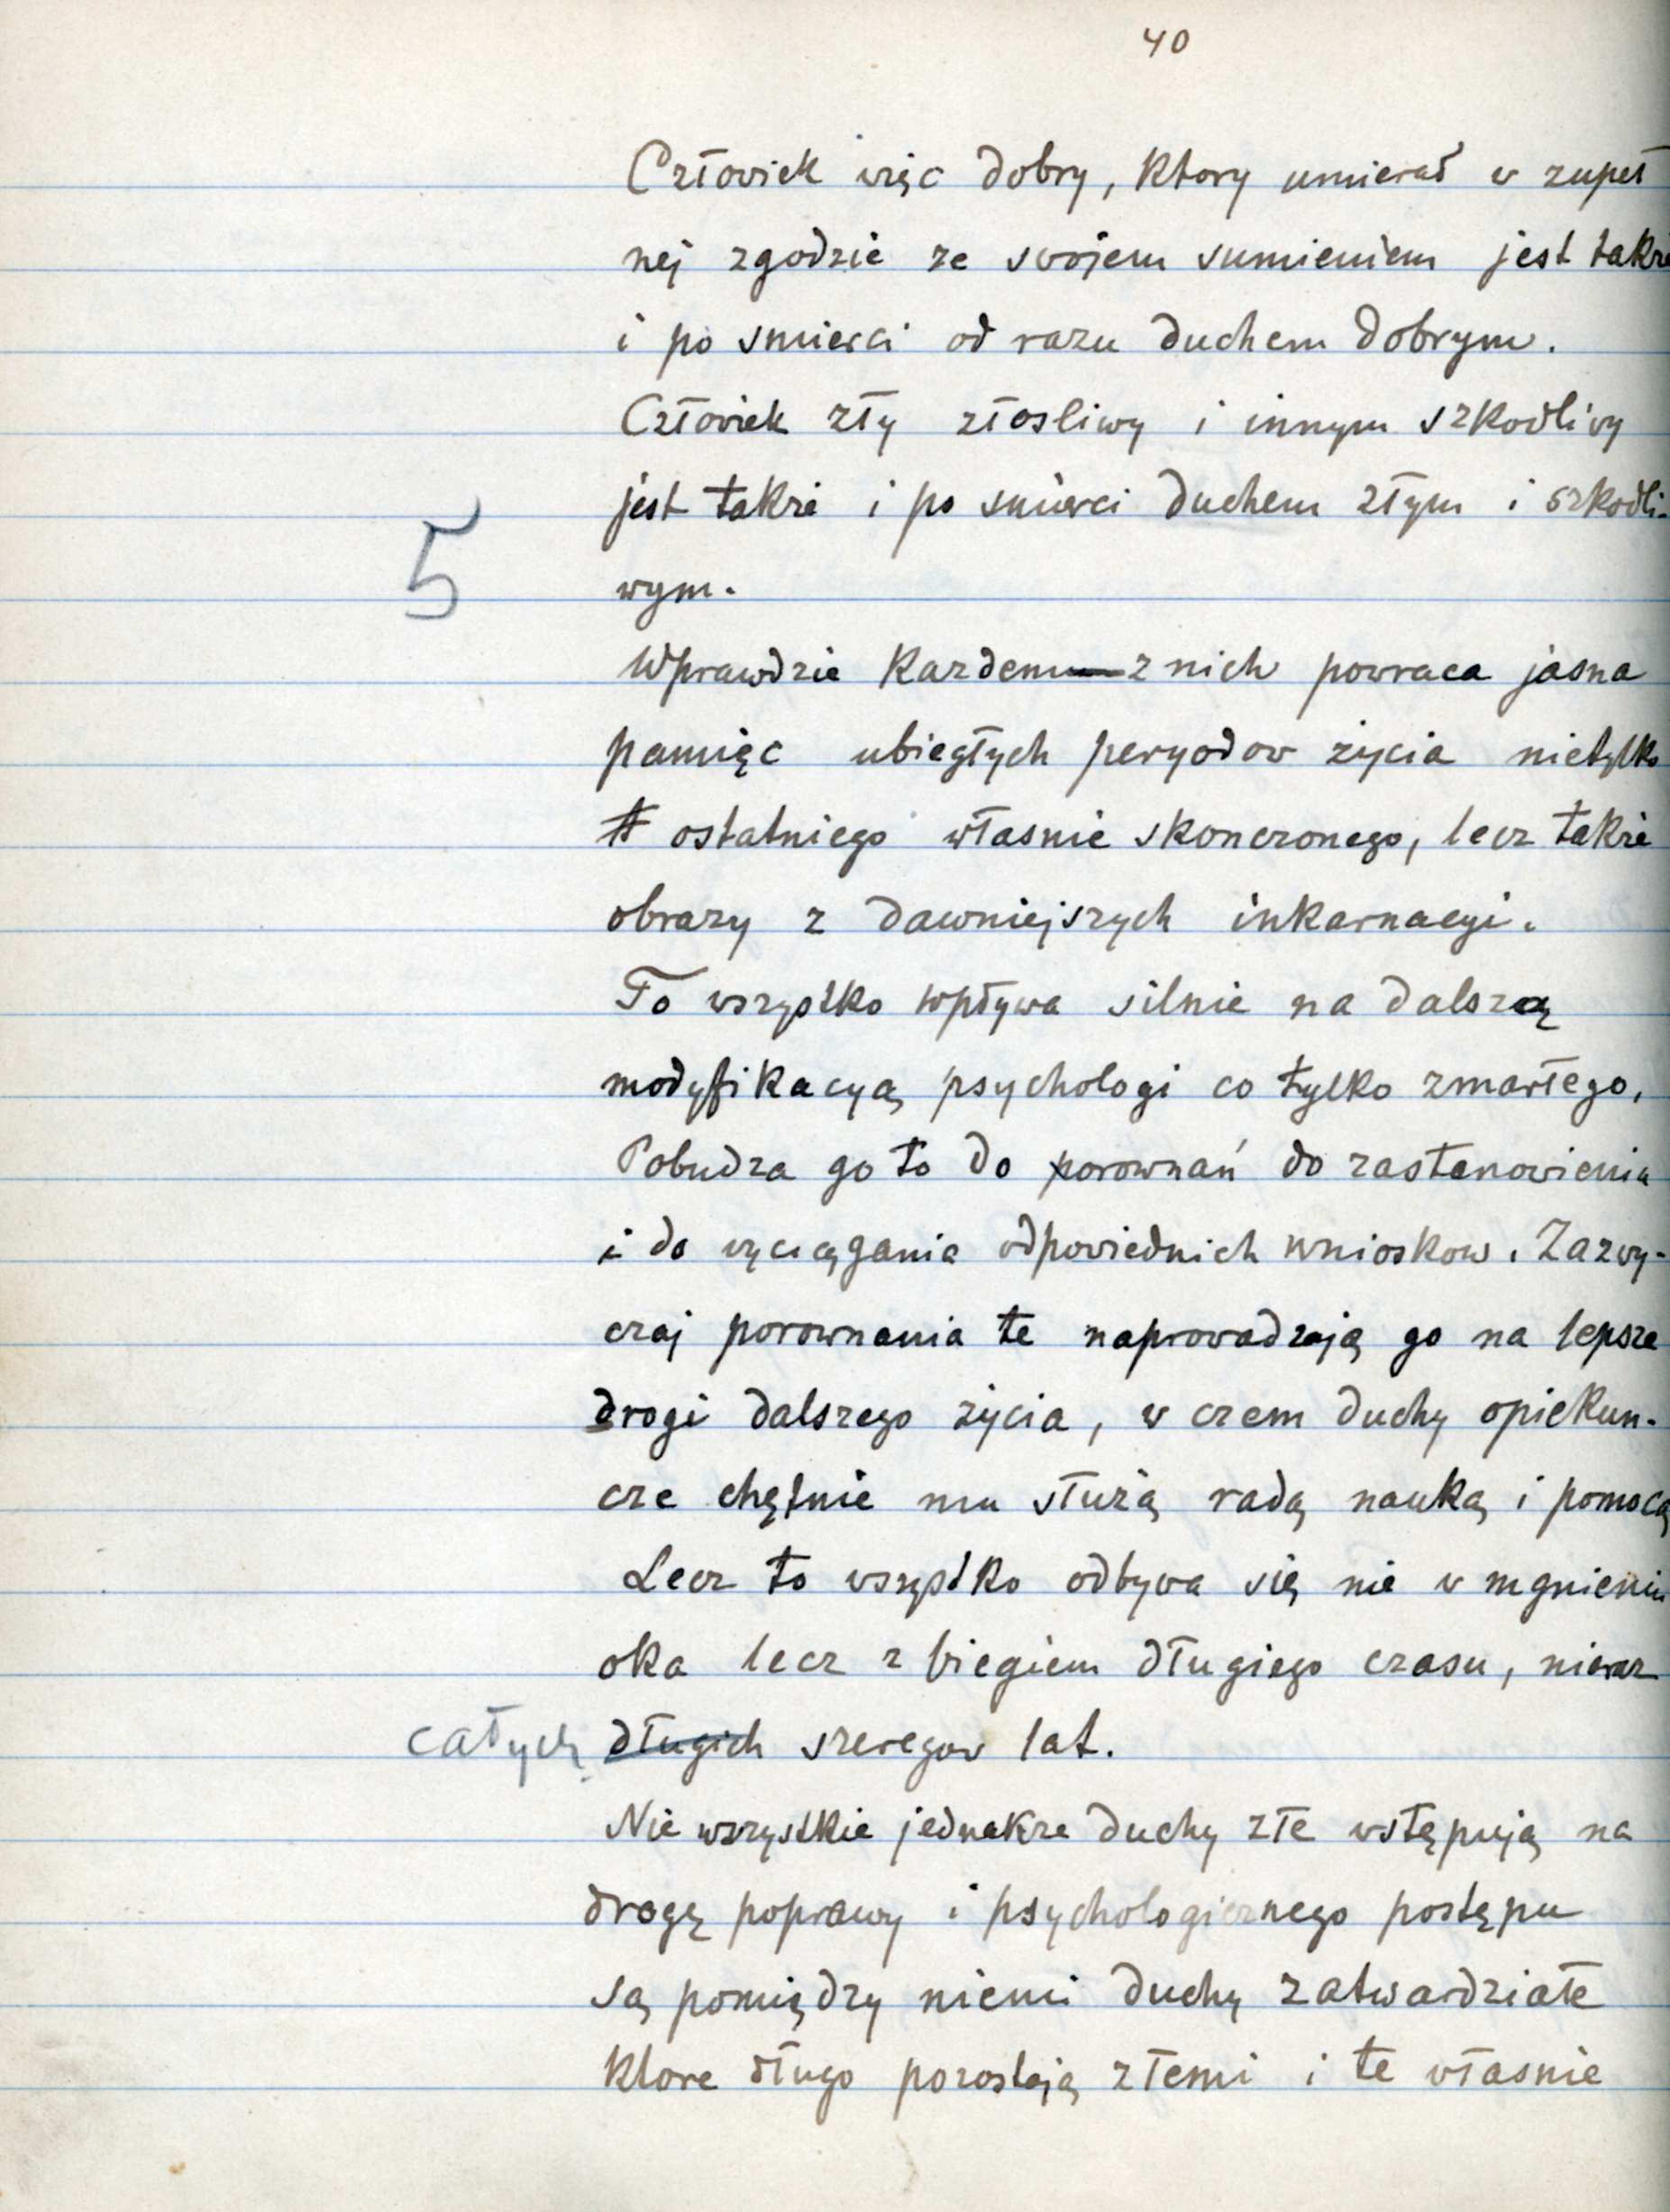 40
Człowiek więc dobry, ktory umierał w zupeł
nej zgodzie ze swojem sumieniem jest takze
i po smierci od razu duchem dobrym.
Człowiek zły złosliwy i innym szkodliwy
jest takze i po smierci duchem złym i szkodli-
5
wym.
Wprawdzie kazdemu z nich powraca jasna
pamięc ubiegłych peryodow zycia nietylko
ostatniego własnie skonczonego, lecz takze
obrazy z dawniejszych inkarnacyi.
To wszystko wpływa silnie na dalszą
modyfikacyą psychologi co tylko zmarłego,
Pobudza go to do porownań do zastanowienia
i do wyciągania odpowiednich wnioskow. Zazwy-
czaj porownania te naprowadzają go na lepsze
drogi dalszego zycia, w czem duchy opiekun-
cze chętnie mu służą radą nauką i pomocą
Lecz to wszystko odbywa się nie w mgnieniu
oka lecz z biegiem długiego czasu, nieraz
całych długich szeregow lat.
Nie wszystkie jednakze duchy złe wstępują na
drogę poprawy i psychologicznego postępu
są pomiędzy niemi duchy zatwardziałe
ktore długo pozostają złemi i te własnie